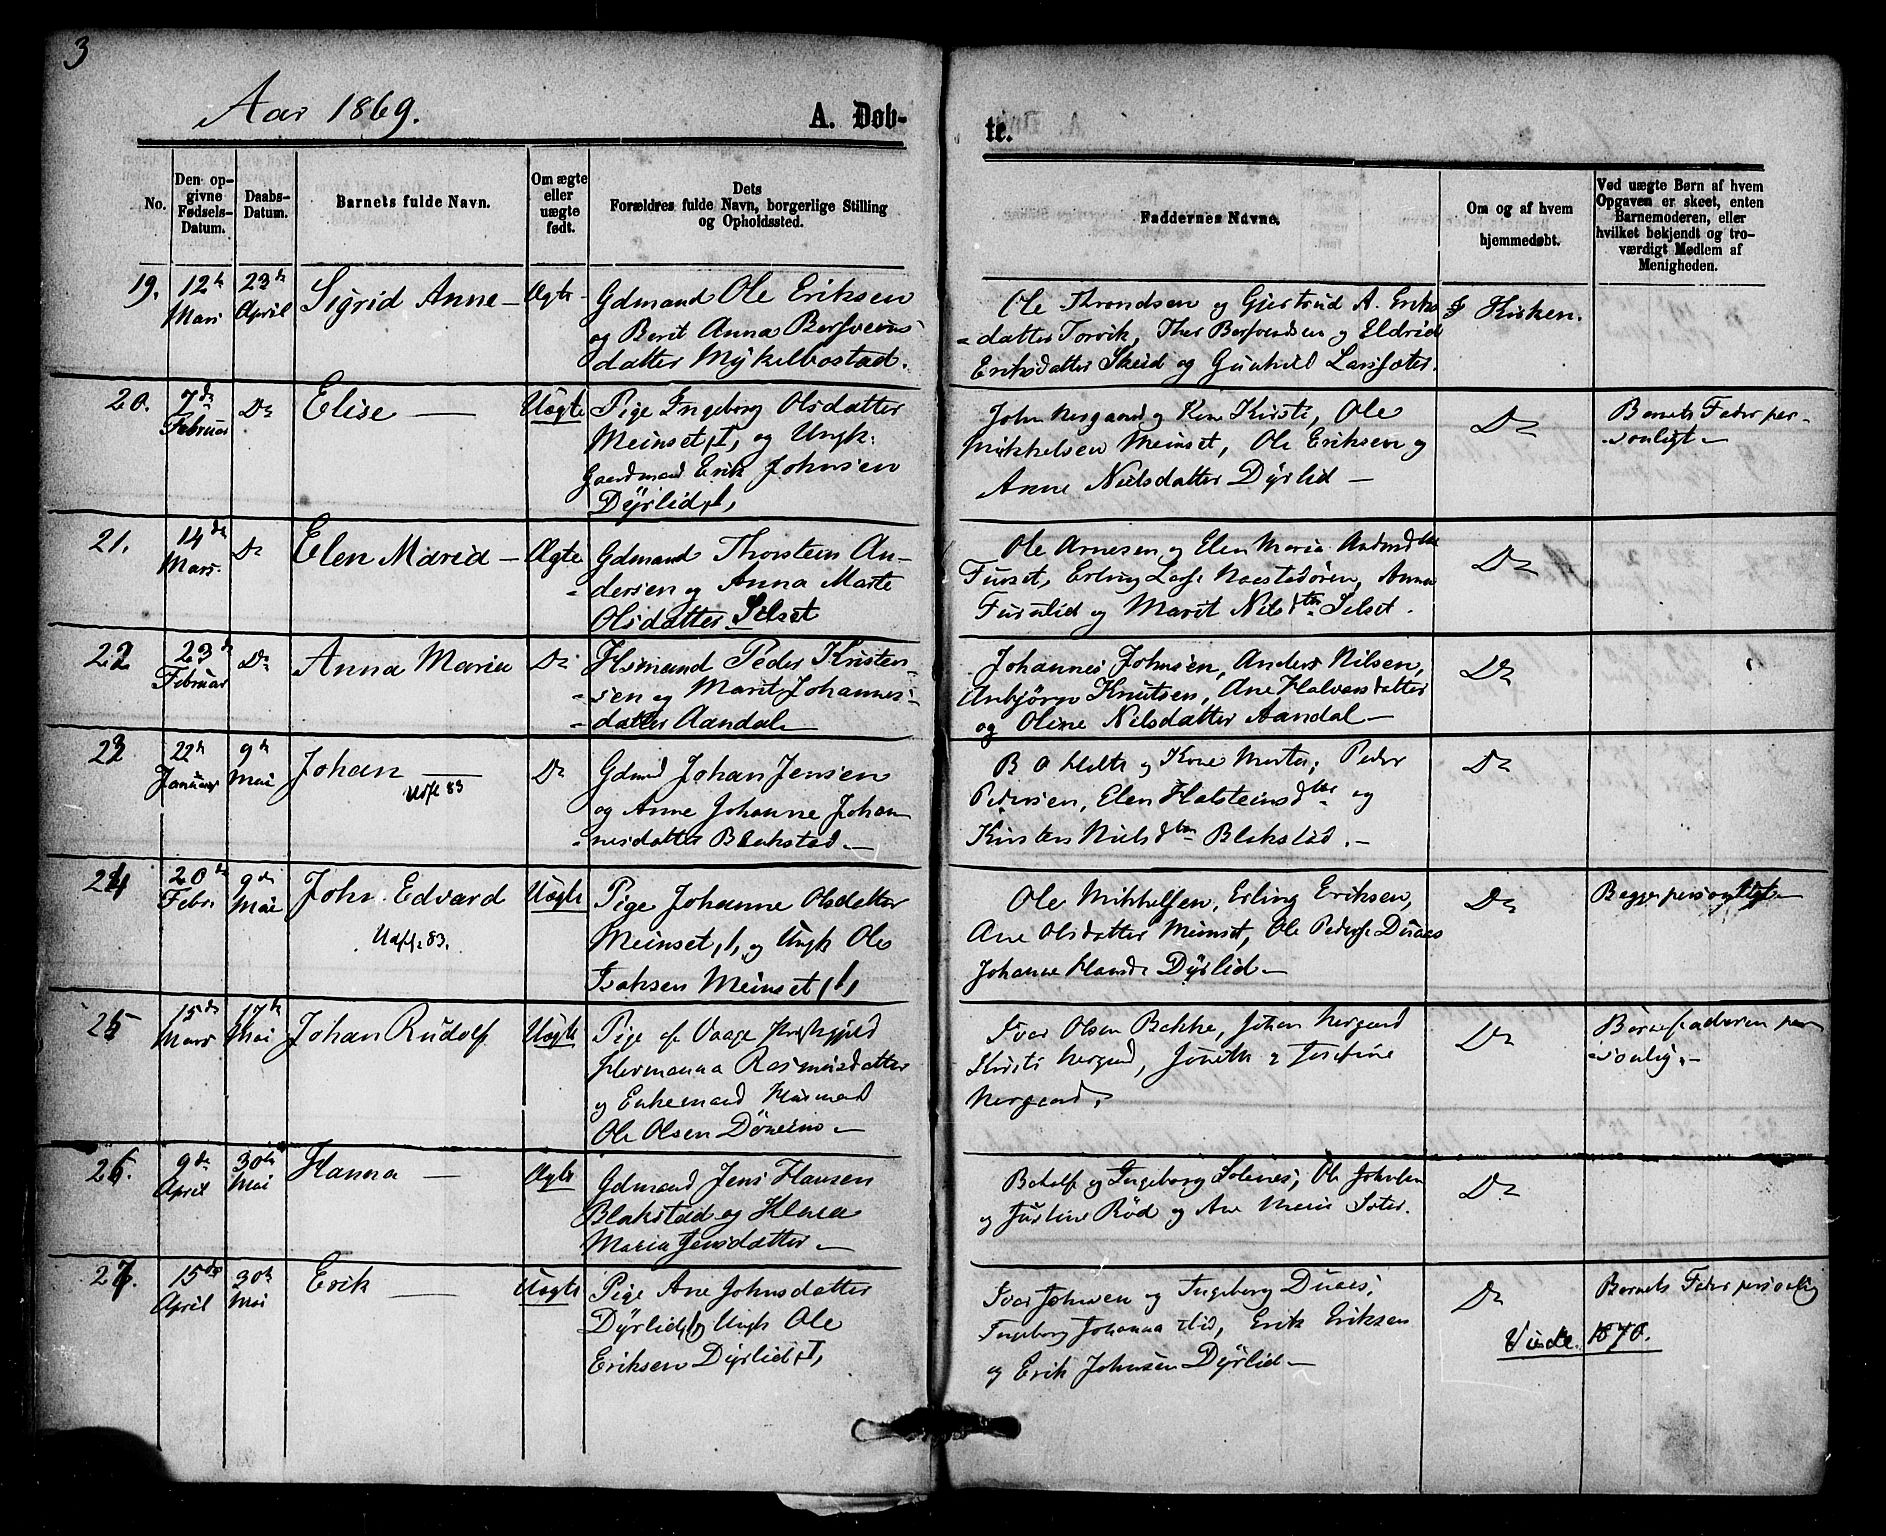 3
Aar 1869.
A. Døb-
te.
No.
Den op-
givne
Fødsels-
Datum.
Daabs-
Datum.
Barnets fulde Navn.
Om ægte
eller
uægte
født.
Dets
Forældres fulde Navn, borgerlige Stilling
og Opholdssted.
Faddernes Navne.
Om og af hvem
hjemmedøbt.
Ved uægte Børn af hvem
Opgaven er skeet, enten
Barnemoderen, eller
hvilket bekjendt og tro-
værdigt Medlem af
Menigheden.
19.
12te
Mars
23de
April
Sigrid Anne —
Ægte
Gdmand Ole Eriksen
og Berit Anna Bersveins-
datter Mykelbostad.
Ole Throndsen og Gjertrud A. Eriks
=datter Torvik, Ther Bersvendsen og Eldrid
Eriksdatter Skeid og Gunhild Larssæter.
I Kirken.
20.
7de
Februar
Do
Elise —
Uægte
Pige Ingeborg Olsdatter
Meinset, 1, og Ungk.
Gaardmand Erik Johnsen
Dÿrlid, 1,
John Nergaard og Kone Kirsti, Ole
Mikkelsen Meinset, Ole Eriksen og
Anne Nielsdatter Dÿrlid —
Do
Barnets Fader per-
sonligt —
21.
14de
Mars.
Do
Elen Maria —
Ægte
Gdmand Thorstein An-
=dersen og Anna Marte
Olsdatter Selset
Ole Arnesen og Elen Maria
Furset, Erling Larss. Naestadören, Anna
Furulid og Marit Nilsdtr Selset.
Do
22
23de
Februar
Do
Anna Maria
Do
Hsmand Peder Kristen-
=sen og Marit Johannes-
=datter Aandal —
Johannes Johnsen, Anders Nilsen,
Anbjörn Knutsen, Ane Halvorsdatter
og Oline Nilsdatter Aandal —
Do
23
22de
Januar
9de
Mai
Johan —
Udfl 83
Do
Gdmd Johan Jensen
og Anne Johanne Johan
nesdatter Blakstad —
B O Holth og Kone Marta, Peder
Pedersen, Elen Halsteinsdtr og
Kirsten Nielsdtr Blakstad. —
Do
24
20de
Febr.
9de
Mai
John Edvard
Udfl. 83.
Uægte
Pige Johanne Olsdatter
Meinset, 1, og Ungk Ole
Isaksen Meinset, 1,
Ole Mikkelsen, Erling Eriksen,
Ane Olsdatter Meinset, Ole Peders. Duaas
Johanne Hansd. Dÿrlid —
Do
Begge personligt —
25
15de
Mars
17de
Mai
Johan Rudolf
Uægte
Pige af Vaage
Hermanna Rasmusdatter
og Enkemand Husmand
Ole Olsen
Ivar Olsen Bakke, Johan Nergaard
Kirsti Nergaard, Josefine
Nergaard.
Do
Barnefaderen per
sonlig. —
26.
9de
April
30te
Mai
Hanna —
Ægte
Gdmand Jens Hansen
Blakstad og Klara
Maria Jensdatter —
Botolf og Ingeborg Solenes, Ole Johnsen
og Justine Rød og Ane Marie Sæter.
Do
27.
15de
April
30te
Mai
Erik —
Uægte
Pige Ane Johnsdatter
Dÿrlid, 1, og Ungk Ole
Eriksen Dÿrlid, 1,
Ivar Johnsen og Ingeborg Duaas,
Ingeborg Johanna Lid, Erik Eriksen
og Erik Johnsen Dÿrlid —
Do
Barnets Fader personlig
Vide. 1870.